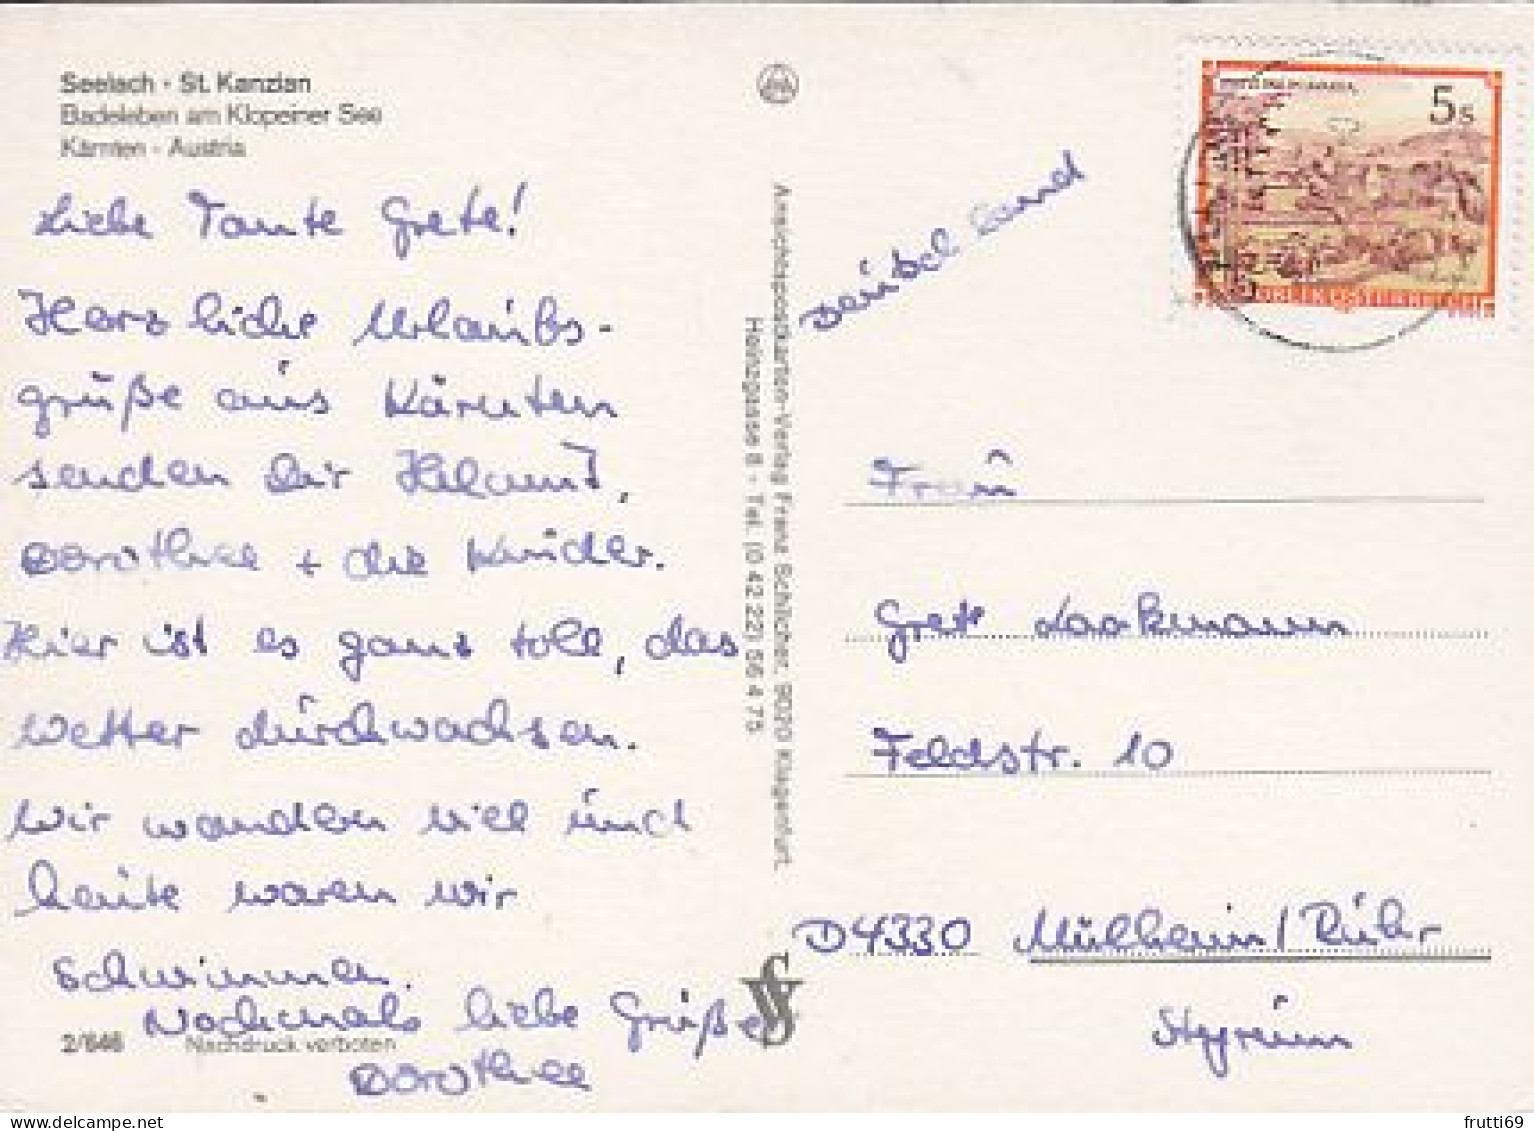 Seelach - St. Kanzian
Badeleben am Klopeiner See
Kärnten - Austria
Liebe Tante Grete!
Herzliche Urlaubs-
grüße aus Kärnten
senden Dir Helmut,
Dorothee + die Kinder.
Hier ist es ganz toll, das
Wetter durchwachsen.
Wir wandern viel und
heute waren wir
schwimmen.
Nochmals liebe Grüße
Dorothee
2/646 Nachdruck verboten
Ansichtspostkarten-Verlag Franz Schilcher, 9020 Klagenfurt,
Heinzgasse 8 - Tel. (0 42 22) 56 4 75
Deutschland
5s
REPUBLIK ÖSTERREICH
Frau
Grete Laakmann
Feldstr. 10
D 4330 Mülheim/Ruhr
Styrum
frutti69